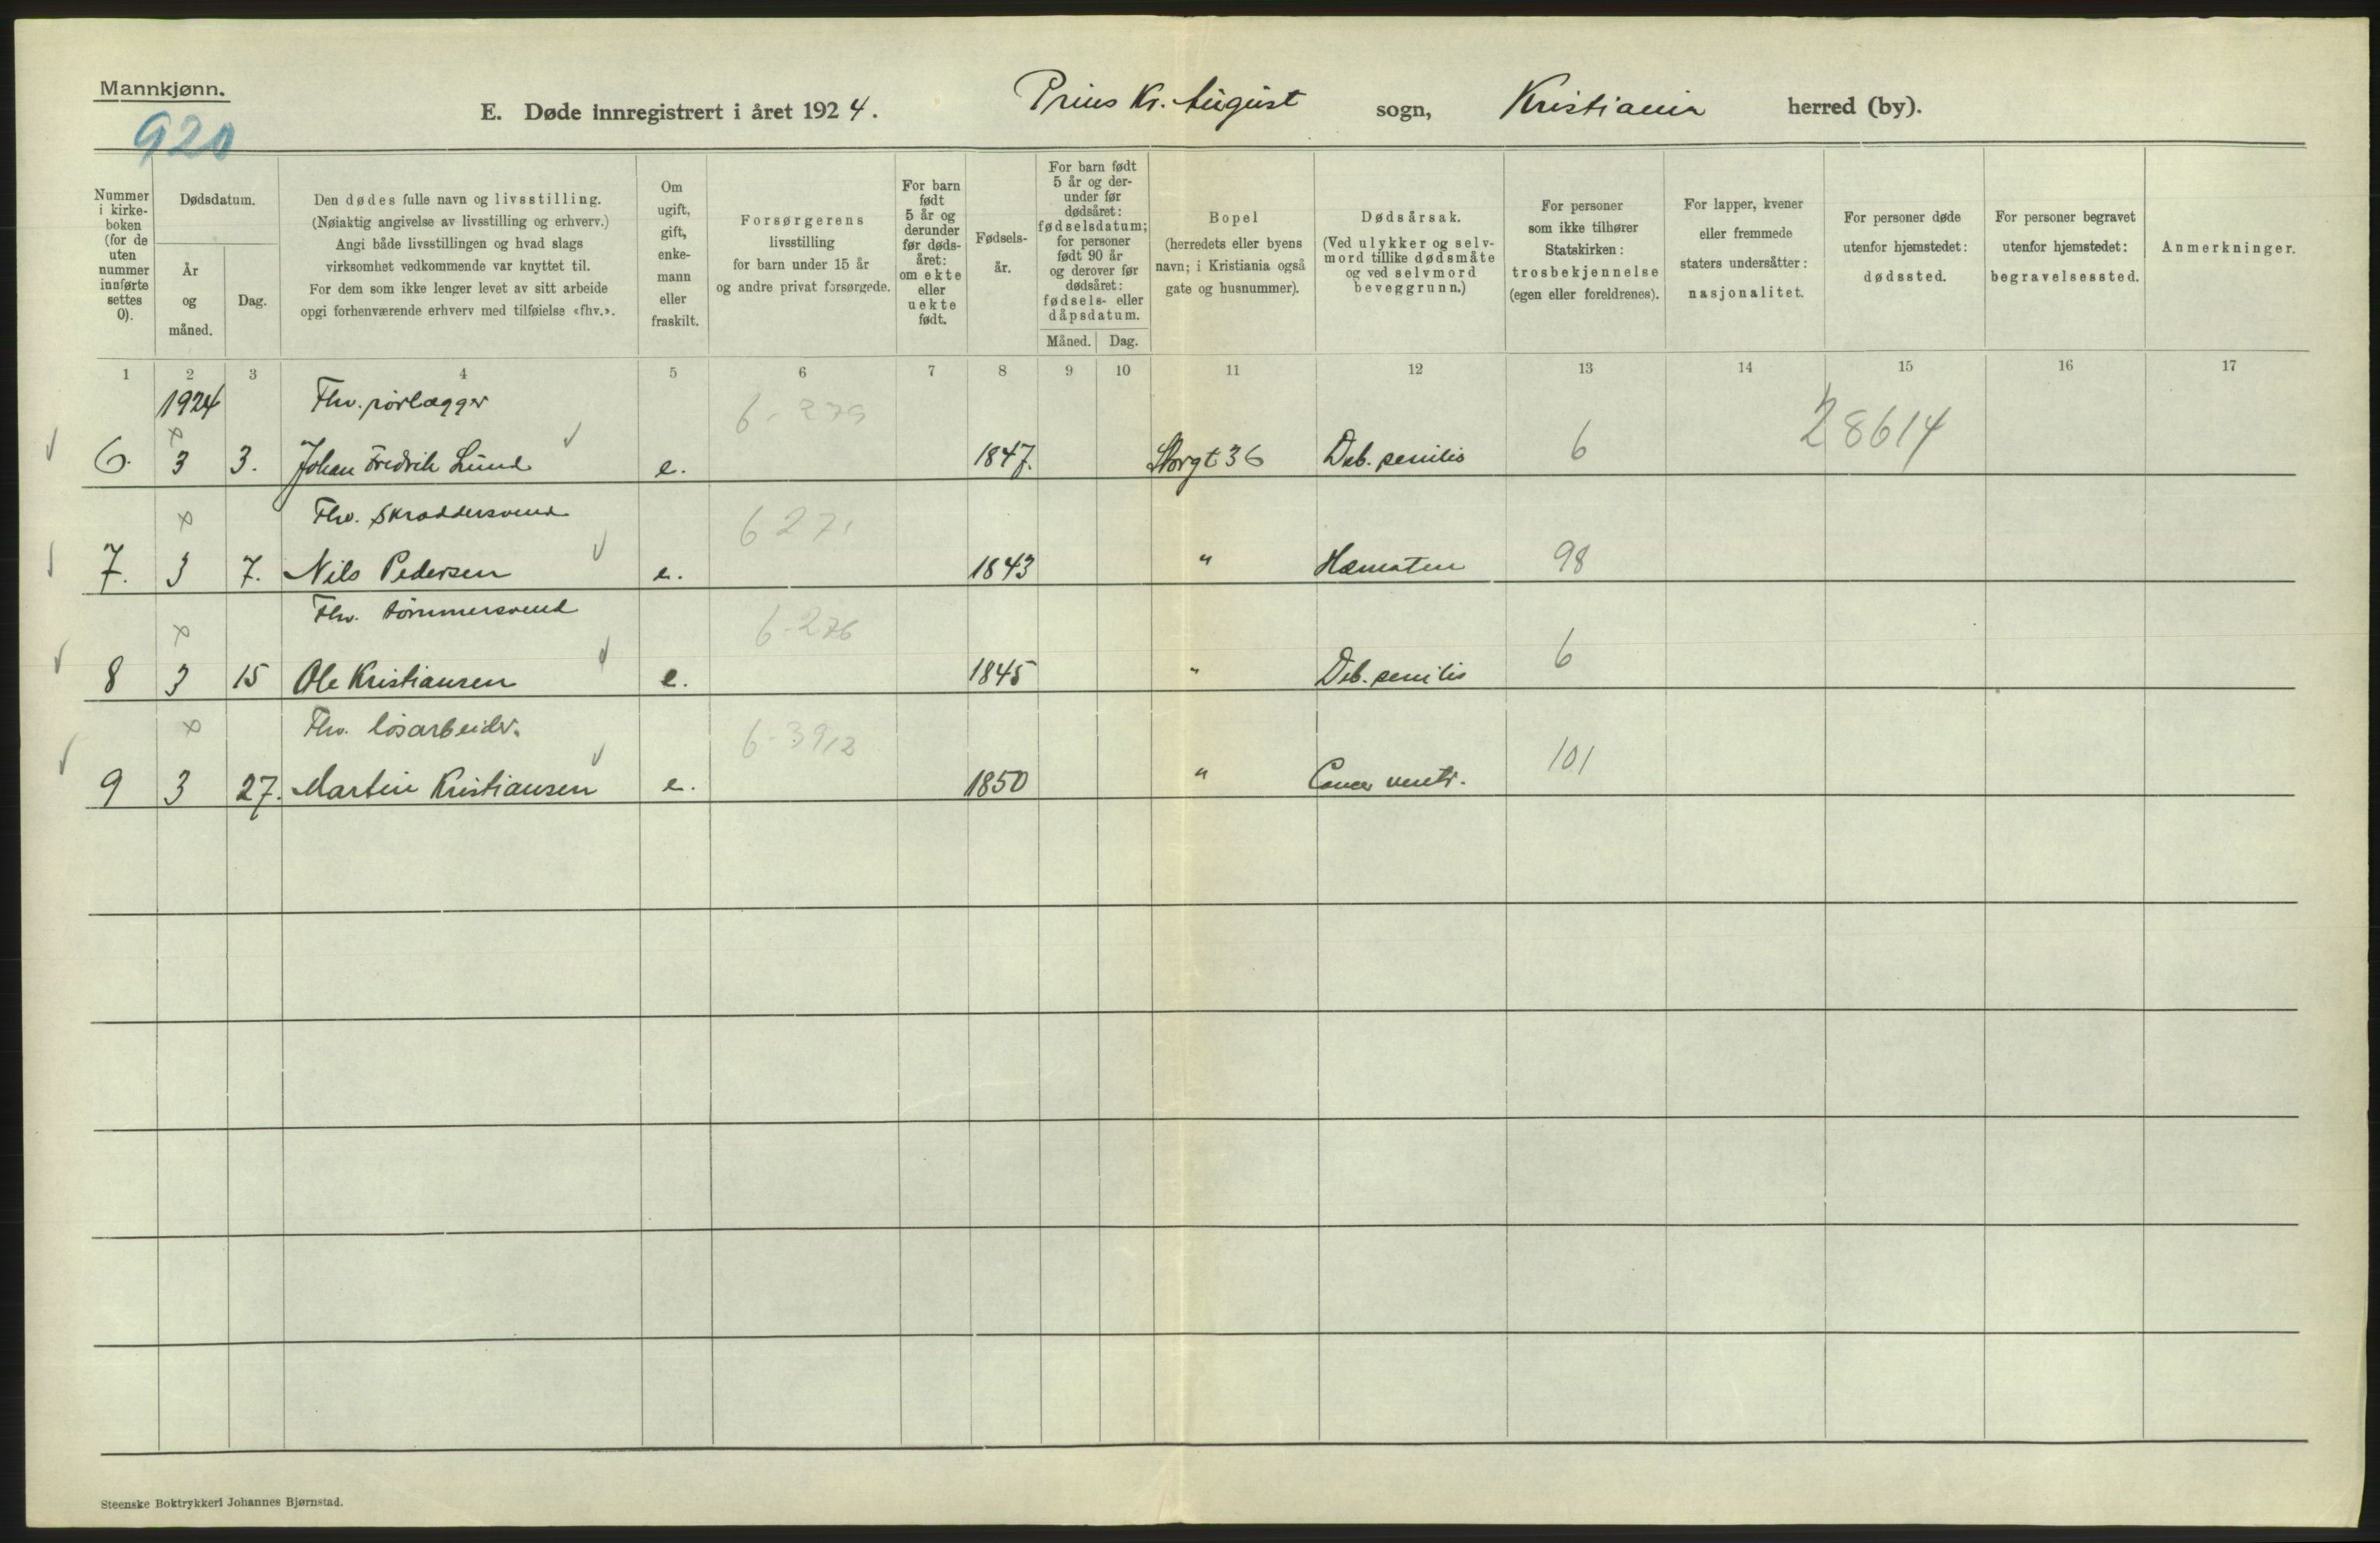 Mannkjønn.
920
E. Døde innregistrert i året 1924. Prins Kr. August sogn, Kristiania herred (by).
Nummer i kirke-boken (for de uten nummer innførte settes 0).
Dødsdatum.
År og måned.
Dag.
Den dødes fulle navn og livsstilling.
(Nøiaktig angivelse av livsstilling og erhverv.)
Angi både livsstillingen og hvad slags
virksomhet vedkommende var knyttet til.
For dem som ikke lenger levet av sitt arbeide
opgi forhenværende erhverv med tilføielse «fhv.».
Om ugift, gift, enke-mann eller fraskilt.
Forsørgerens
livsstilling
for barn under 15 år
og andre privat forsørgede.
For barn født 5 år og derunder før døds-året: om ekte eller uekte født.
Fødsels-år.
For barn født 5 år og der-under før dødsåret: fødselsdatum; for personer født 90 år og derover før dødsåret: fødsels- eller dåpsdatum.
Måned.
Dag.
Bopel
(herredets eller byens
navn; i Kristiania også
gate og husnummer).
Dødsårsak.
(Ved ulykker og selv-
mord tillike dødsmåte
og ved selvmord
beveggrunn.)
For personer
som ikke tilhører
Statskirken:
trosbekjennelse
(egen eller foreldrenes).
For lapper, kvener
eller fremmede
staters undersåtter:
nasjonalitet.
For personer døde
utenfor hjemstedet:
dødssted.
For personer begravet
utenfor hjemstedet:
begravelsessted.
Anmerkninger.
1 2 3 4 5 6 7 8 9 10 11 12 13 14 15 16 17
1924 Fhv. rørlægger 6-279 28614
6. 3 3. Johan Fredrik Lund e. 1847. Storgt 36 Deb. senilis 6
Fhv. Skræddersvend 6 271
7. 3 7. Nils Pedersen e. 1843 " Hæmaten 98
Fhv. tømmersvend 6-276
8 3 15 Ole Kristiansen e. 1845 " Deb. senilis 6
Fhv. løsarbeider. 6-3912
9 3 27. Martin Kristiansen e. 1850 " Cancer ventr. 101
Steenske Boktrykkeri Johannes Bjørnstad.